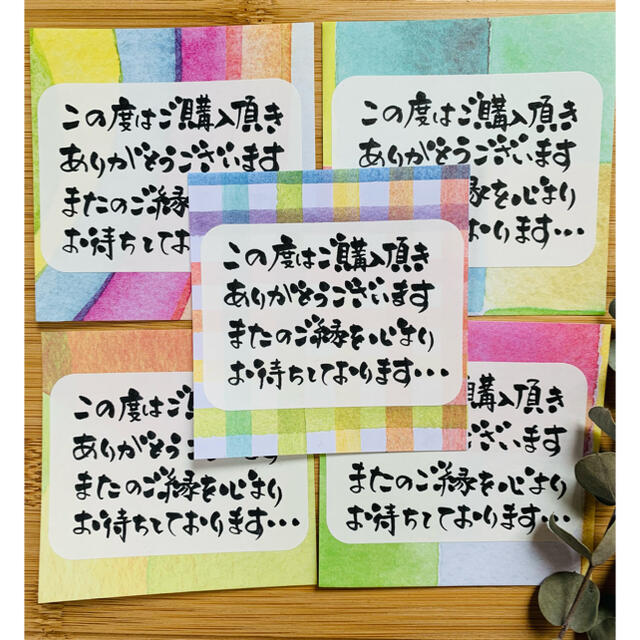 この度はご購入頂き
ありがとうございます
またのご縁
お待ちしてお
この度はご購入頂き
ありがとうございます
縁を心より
おります・・・
この度はご購入頂き
ありがとうございます
またのご縁を心より
お待ちしております・・・
この度はご
ありがとう
またのご縁を心より
お待ちしております・・・
購入頂き
ございます
またのご縁を心より
お待ちしております・・・